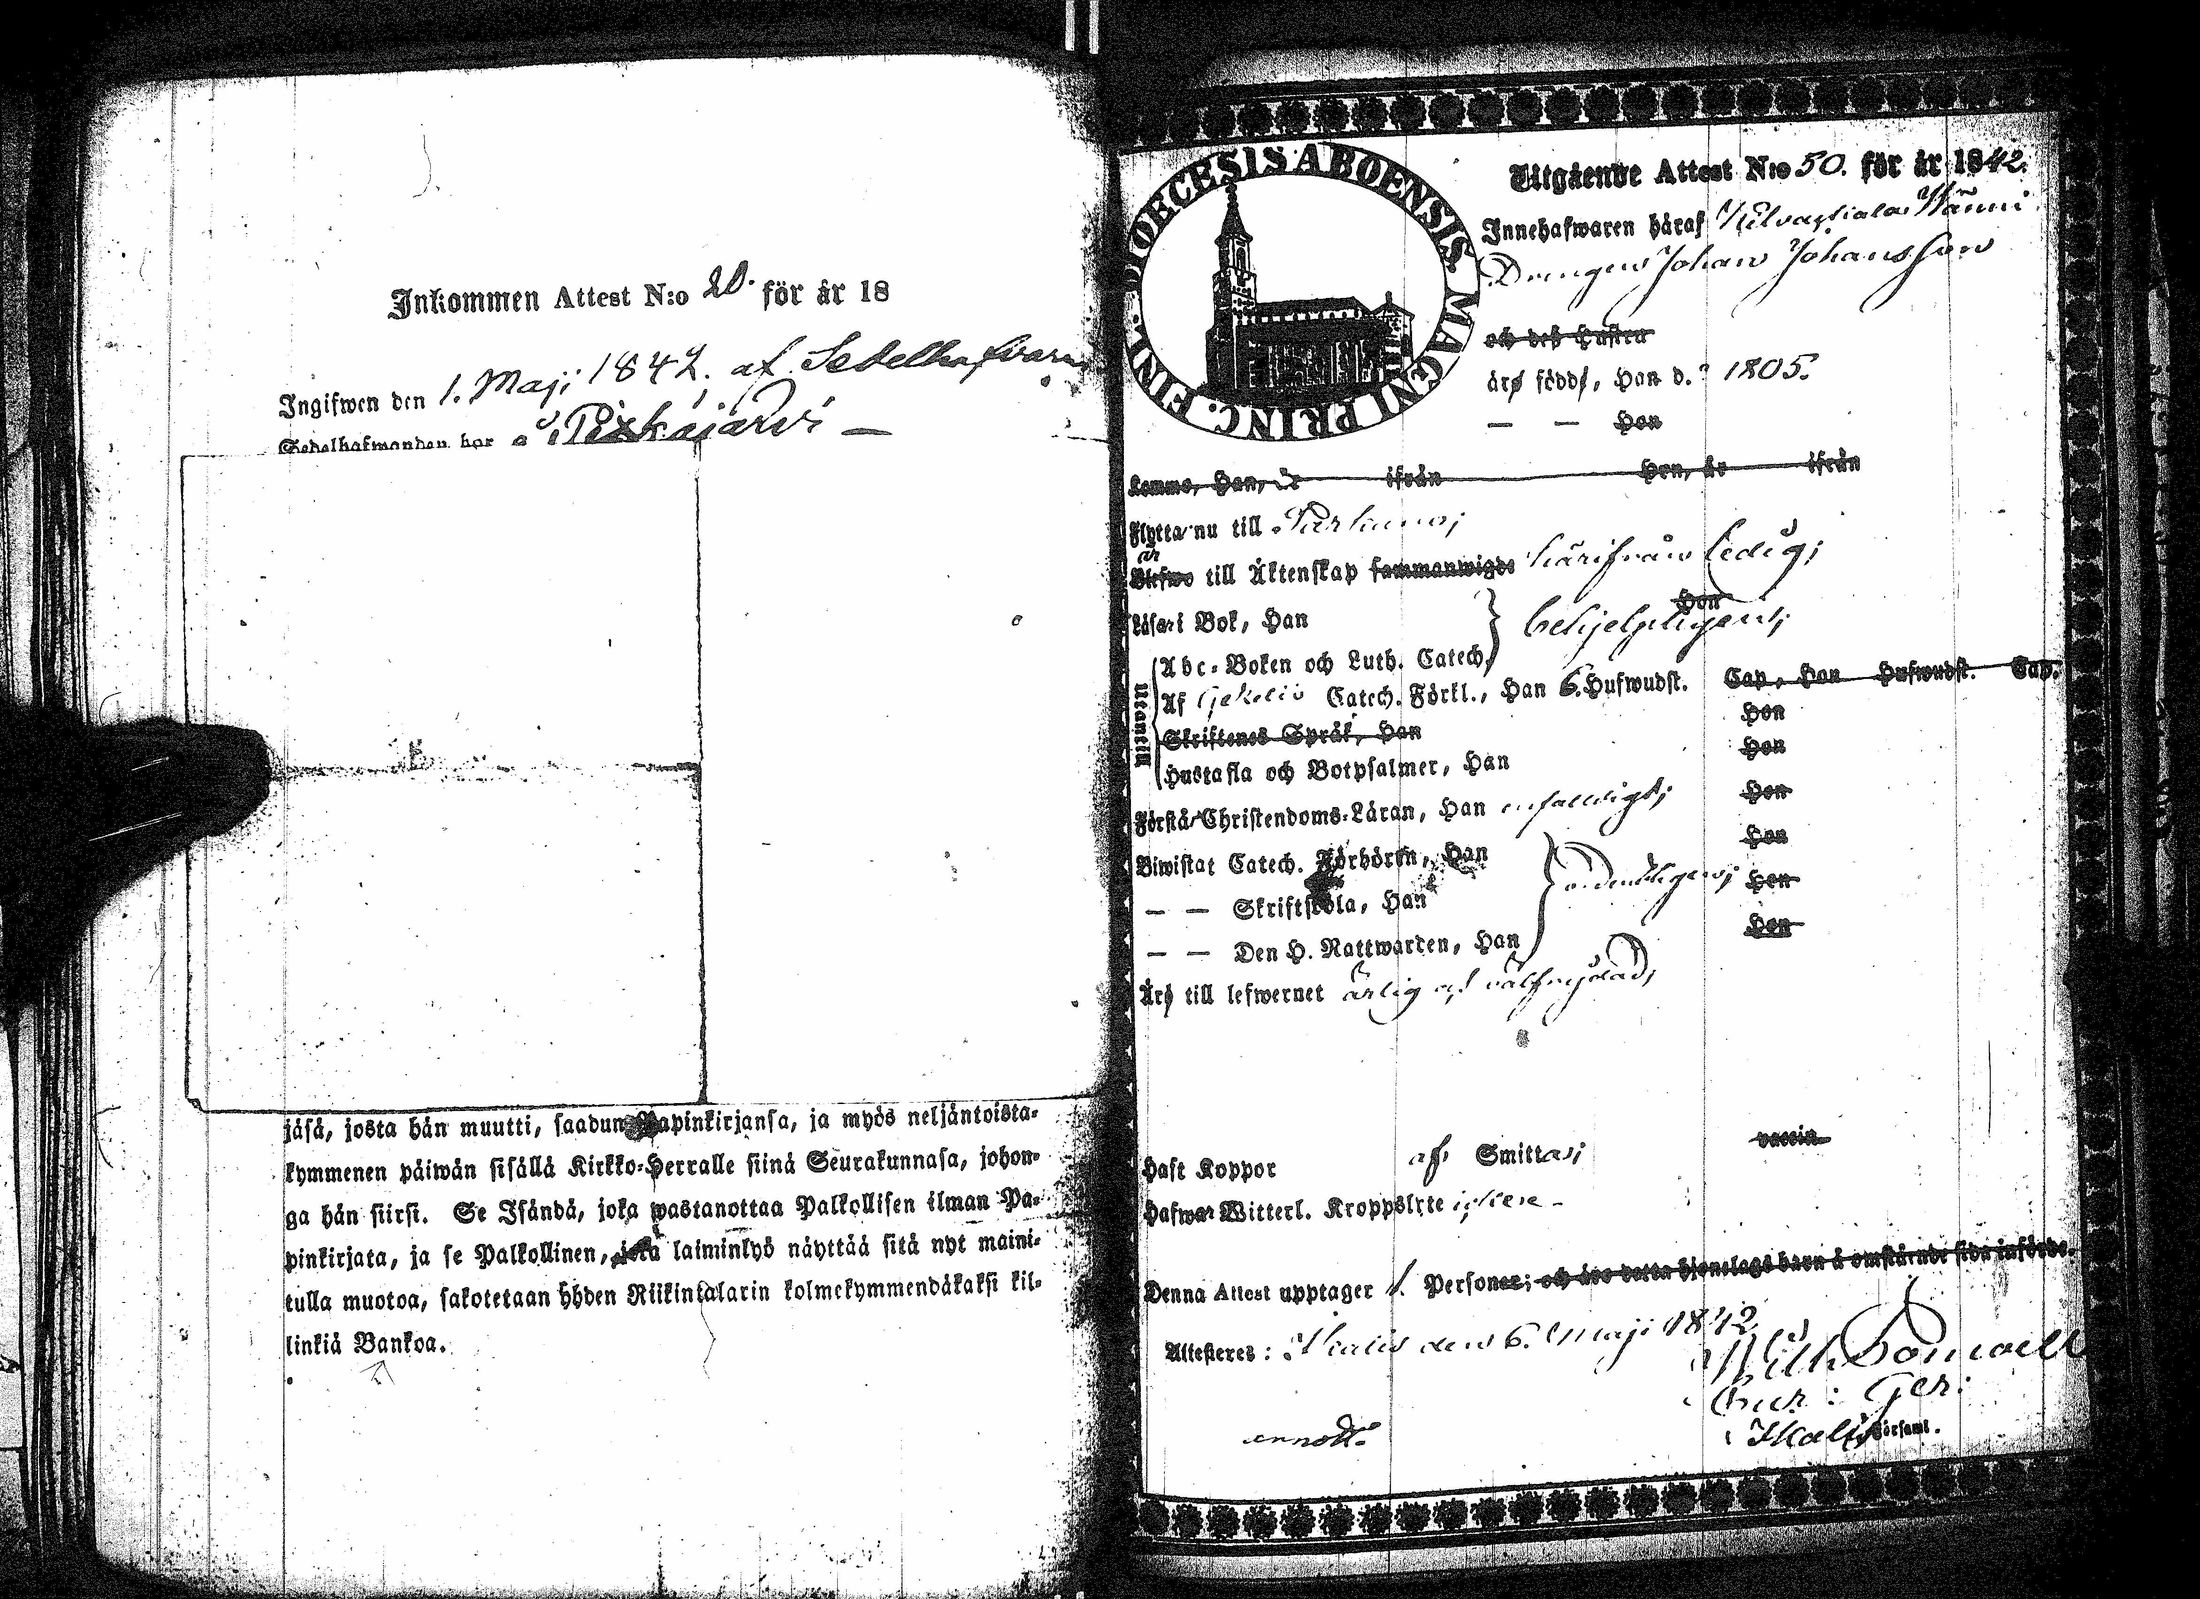 Inkommen Attest N:o 20. för år 18
Ingifwen den 1. Maji 1842. af Sedelhafvaren
Sedelhafwanden har
jäsä, josta hän muutti, saadun Papinkirjansa, ja myös neljäntoista-
kymmenen päiwän sisällä Kirkko-Herralle siinä Seurakunnasa, johon-
ga hän siirsi. Se Isändä, joka wastanottaa Palkollisen ilman Pa-
pinkirjata, ja se Palkollinen, joka laiminlyö näyttää sitä nyt maini-
tulla muotoa, sakotetaan yhden Riikintalarin kolmekymmendäkaksi kil-
linkiä Bankoa.
DIOECESIS ABOENSIS. MAGNI PRINC. FINL.
Utgående Attest N:o 50. för år 1842.
Innehafwaren häraf
Drengen Johan Johansson
och deß Hustru
äro födde, Han d. 1805.
— — Hon
Komme, Han, år ifrån Hon, år ifrån
Flytta nu till Parkano;
är
Blefwo till Äktenskap sammanwigde härifrån ledig;
Hon
Läsa i Bok, Han behjelpligen;
Utantill
Abc-Boken och Luth. Catech.
Af Gezelii Catech. Förkl., Han 6. Hufwudst. Cap, Hon Hufwudst. Cap.
Skriftenes Språk, Han Hon
Hustafla och Botpsalmer, Han Hon
Förstå Christendoms-Läran, Han enfaldigt; Hon
Biwistat Catech. Förhören, Han Hon
— — Skriftskola, Han ordentligen; Hon
— — Den H. Nattwarden, Han Hon
Äro till lefwernet ärlig och välfrejdad;
Haft Koppor af Smittan; vaccin
Hafwa Witterl. Kroppslyte icke –
Denna Attest upptager 1. Personer; och äro detta hjonelags barn å omstående sida införde.
Attesteres: Ikalis den 6. Maji 1842
Ikalis Församl.
annott.